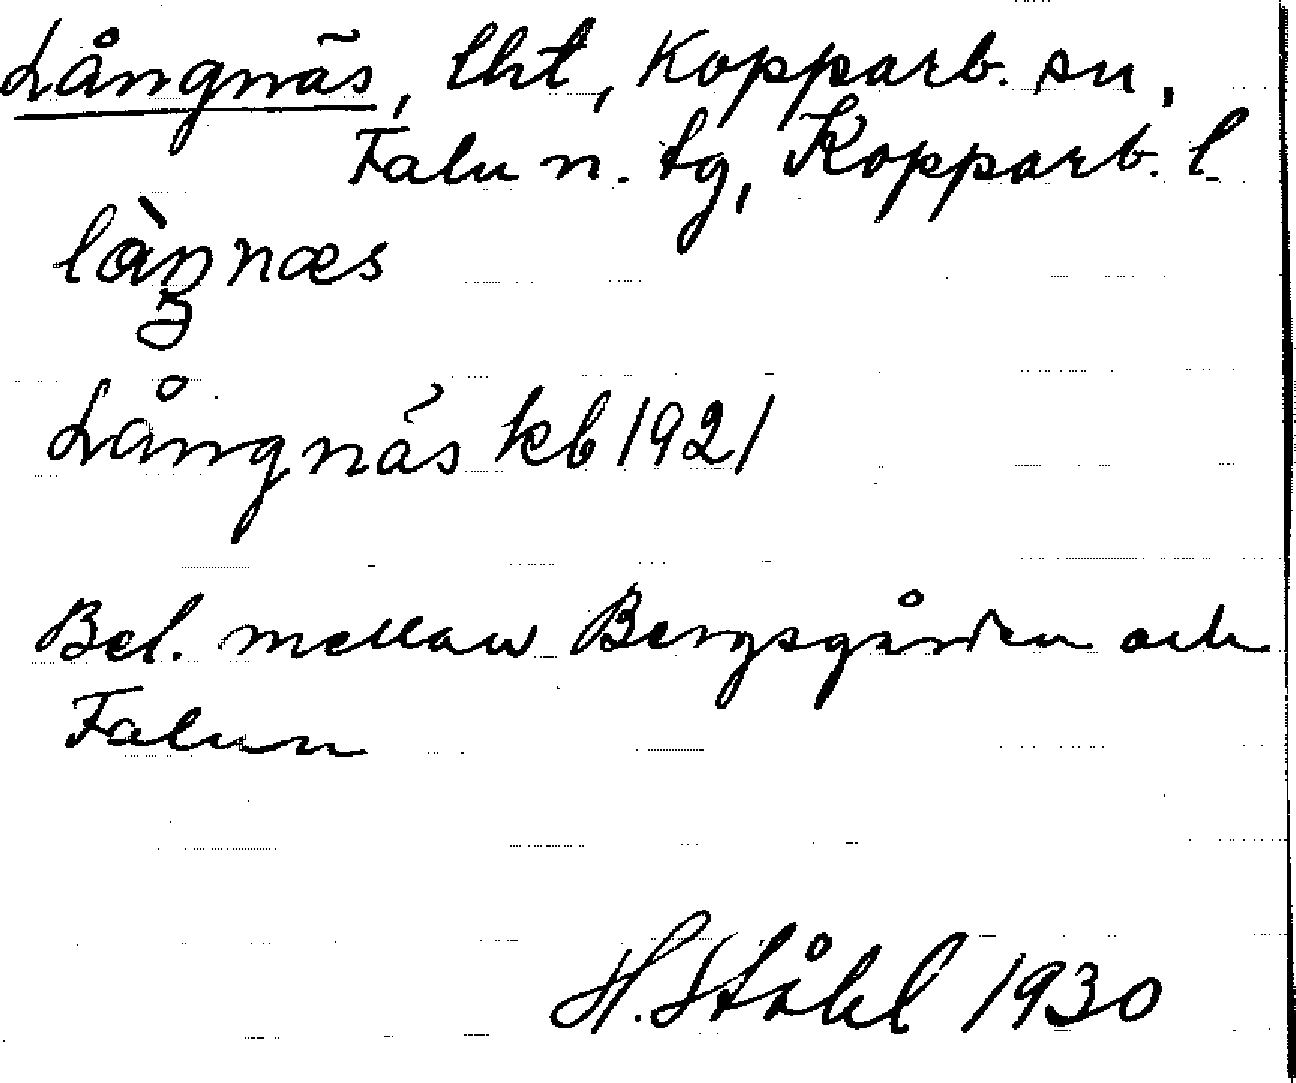 Långnäs, lht, Kopparb. sn,
Falu n. tg, Kopparb. l.
làŋnæs
Långnäs kb 1921
Bel. mellan Bergsgården och
Falun
H. Ståhl 1930